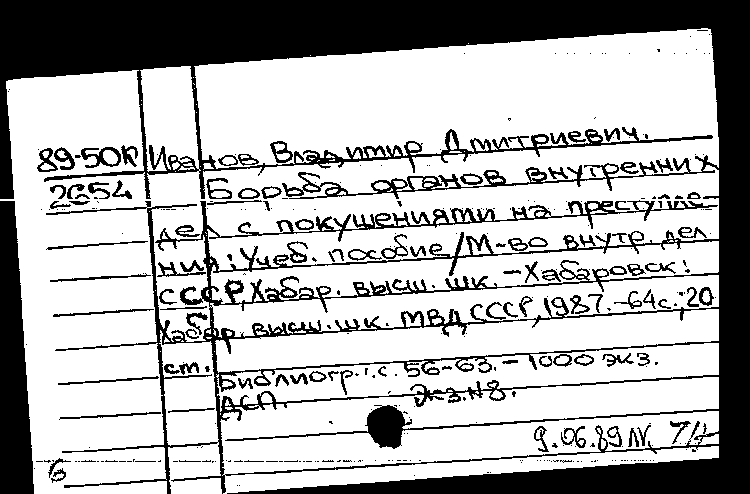 89-50R Иванов, Владимир Дмитриевич.
2654 Борьба органов внутренних
дел с покушениями на преступле-
ния: Учеб. пособие / М-во внутр. дел
СССР, Хабар. высш. шк. - Хабаровск:
Хабар. высш. шк. МВД СССР, 1987. - 64 с.; 20
см.
Библиогр.: с. 56-63. - 1000 экз.
ДСП. Экз. №8.
9.06.89
6